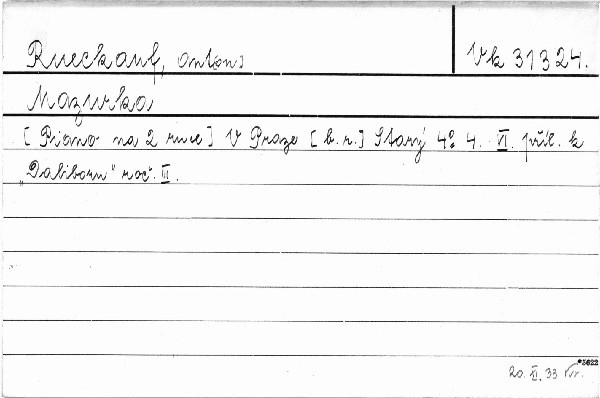 Rueckauf, Anton:
Vk 31324.
Mazurka
[Piano na 2 ruce] V Praze [b.r.] Starý 4º 4. VI. příl. k
„Daliboru" roč. III.
*3622
20. XI. 33